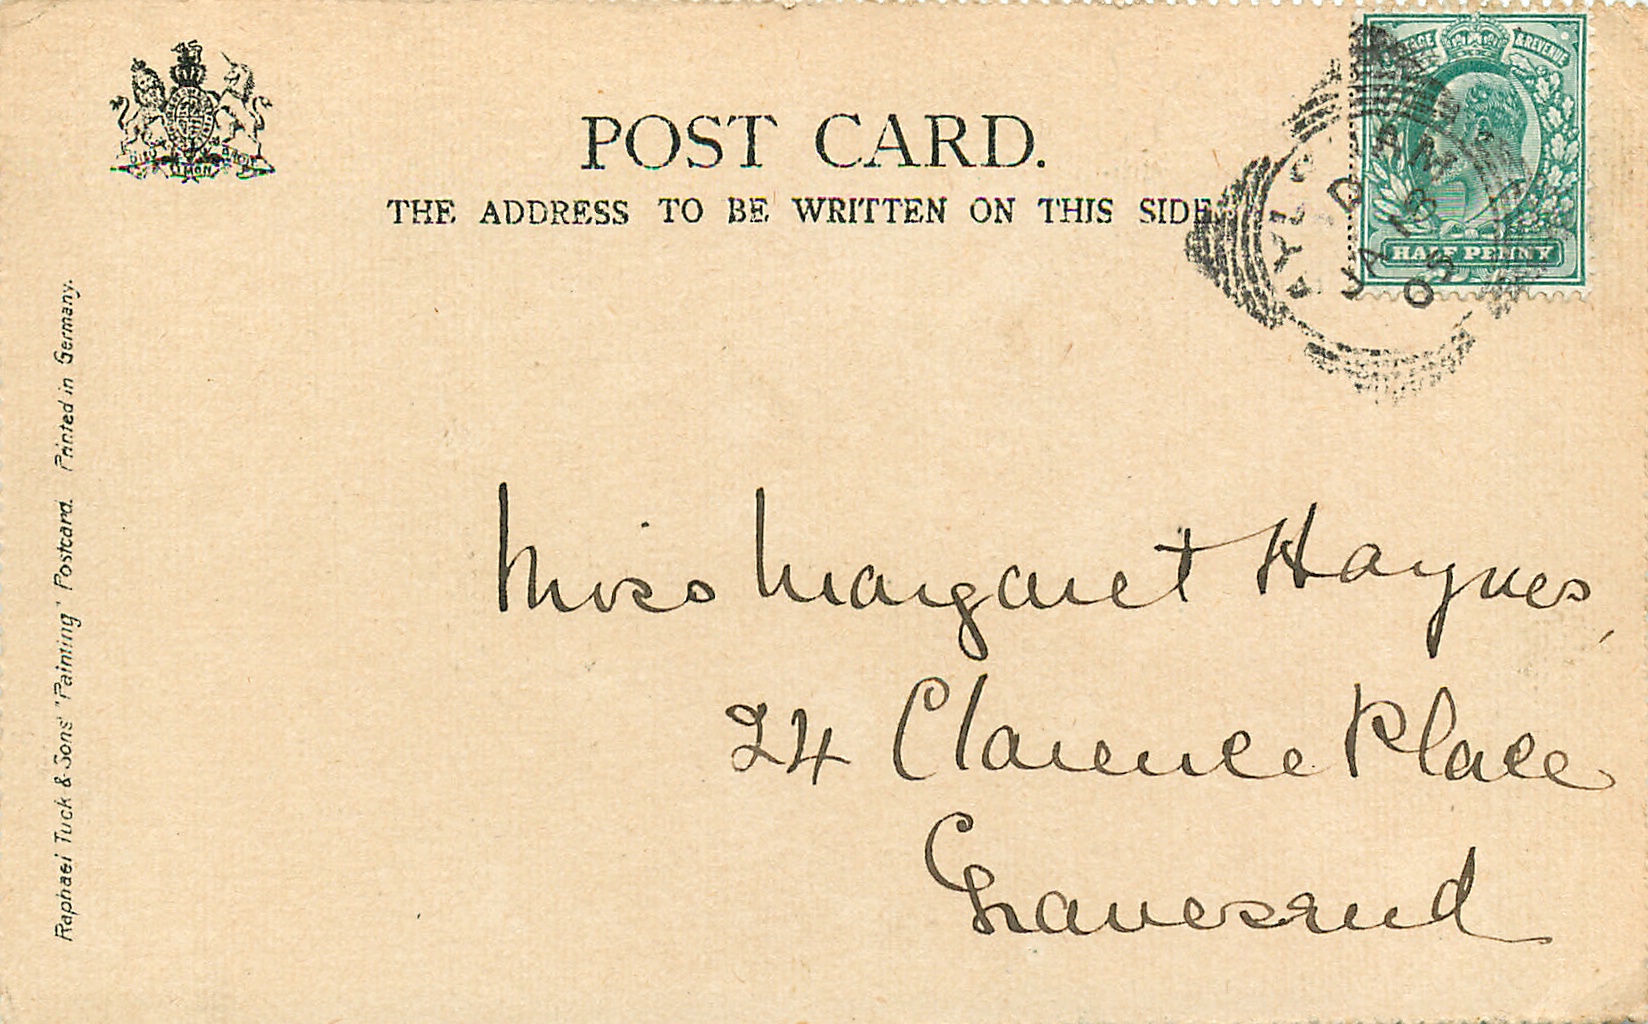 POST CARD.
THE ADDRESS TO BE WRITTEN ON THIS SIDE.
POSTAGE & REVENUE
HALF PENNY
AM
JA 26
05
Miss Margaret Haynes,
24 Clarence Place
Gravesend
Raphael Tuck & Sons' "Painting" Postcard. Printed in Germany.